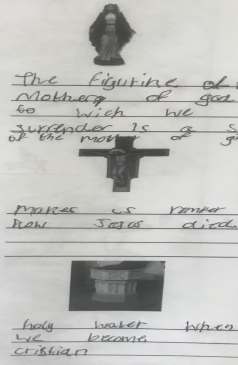 The figutine of
Mothery of god
to wich we
surrender is a s
of the mother of g
makes us rember
how Jesos died
holy water when
we become
cristian